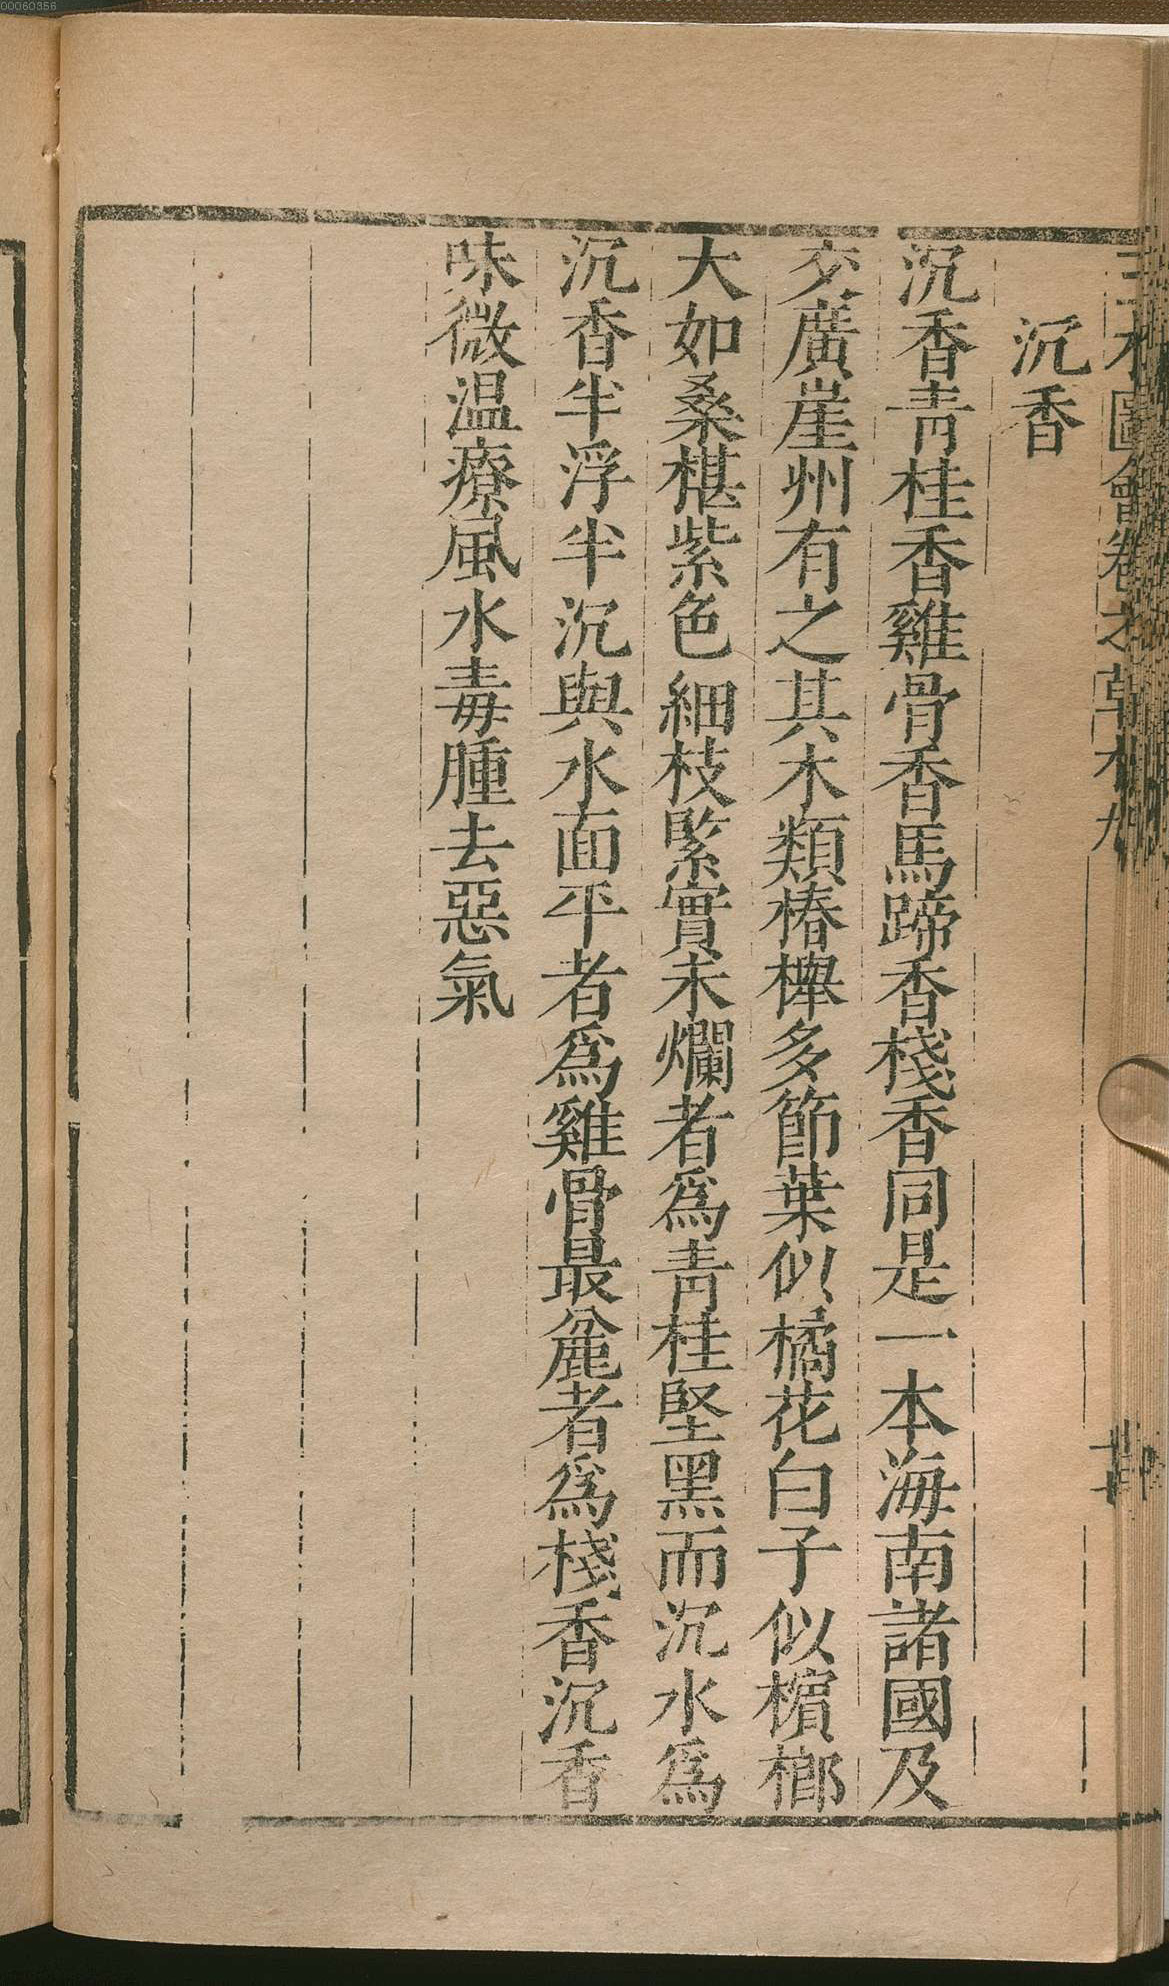 00060356
三才圖會卷之草木九
沉香
沉香青桂香雞骨香馬蹄香棧香同是一本海南諸國及
交廣崖州有之其木類椿櫸多節葉似橘花白子似檳榔
大如桑椹紫色細枝緊實未爛者爲青桂堅黑而沉水爲
沉香半浮半沉與水面平者爲雞骨最麄者爲棧香沉香
味微温療風水毒腫去惡氣